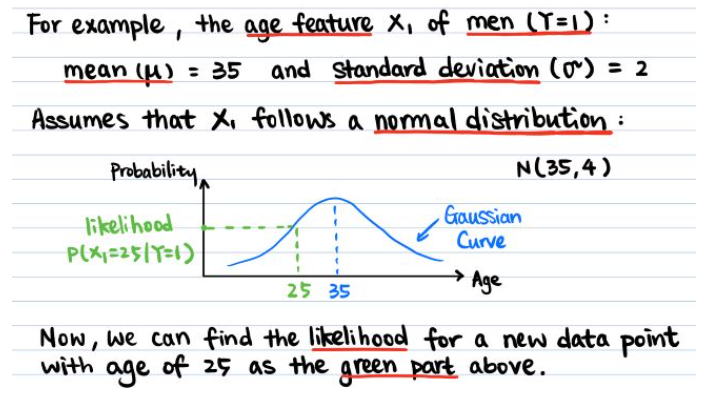 For example, the age feature X₁ of men (Y=1):
mean (μ) = 35 and standard deviation (σ) = 2
Assumes that X₁ follows a normal distribution:
Probability
N(35,4)
likelihood
P(X₁=25|Y=1)
Gaussian
Curve
25 35
Age
Now, we can find the likelihood for a new data point
with age of 25 as the green part above.